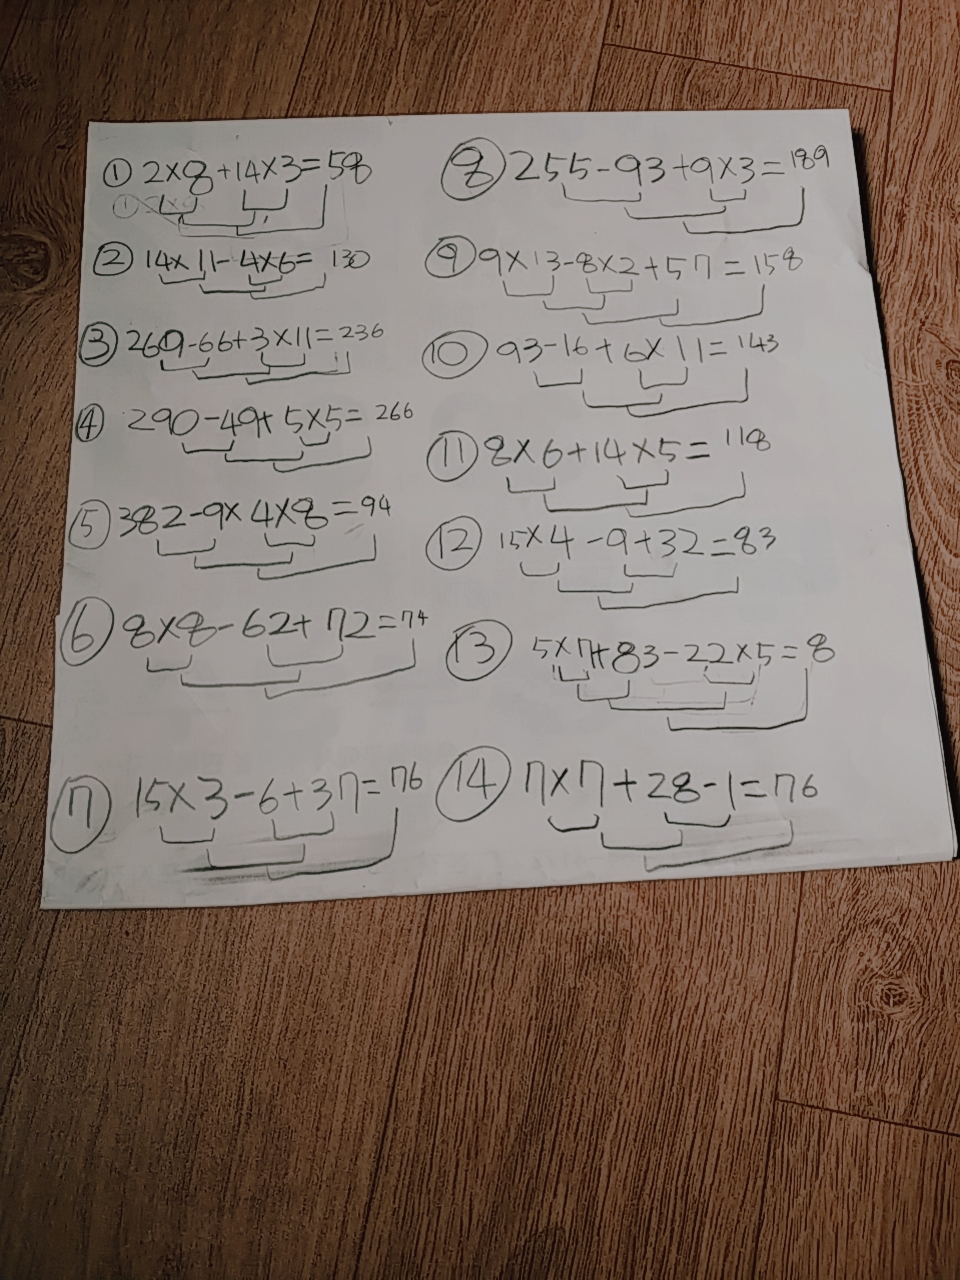 ① 2×8+14×3=58
② 14×11-4×6= 130
③ 269-66+3×11=236
④ 290-49+5×5=266
⑤ 382-9×4×8=94
⑥ 8×8-62+72=74
⑦ 15×3-6+37=76
⑧ 255-93+9×3=189
⑨ 9×13-8×2+57=158
⑩ 93-16+6×11=143
⑪ 8×6+14×5=118
⑫ 15×4-9+32=83
⑬ 5×7+83-22×5=8
⑭ 7×7+28-1=76